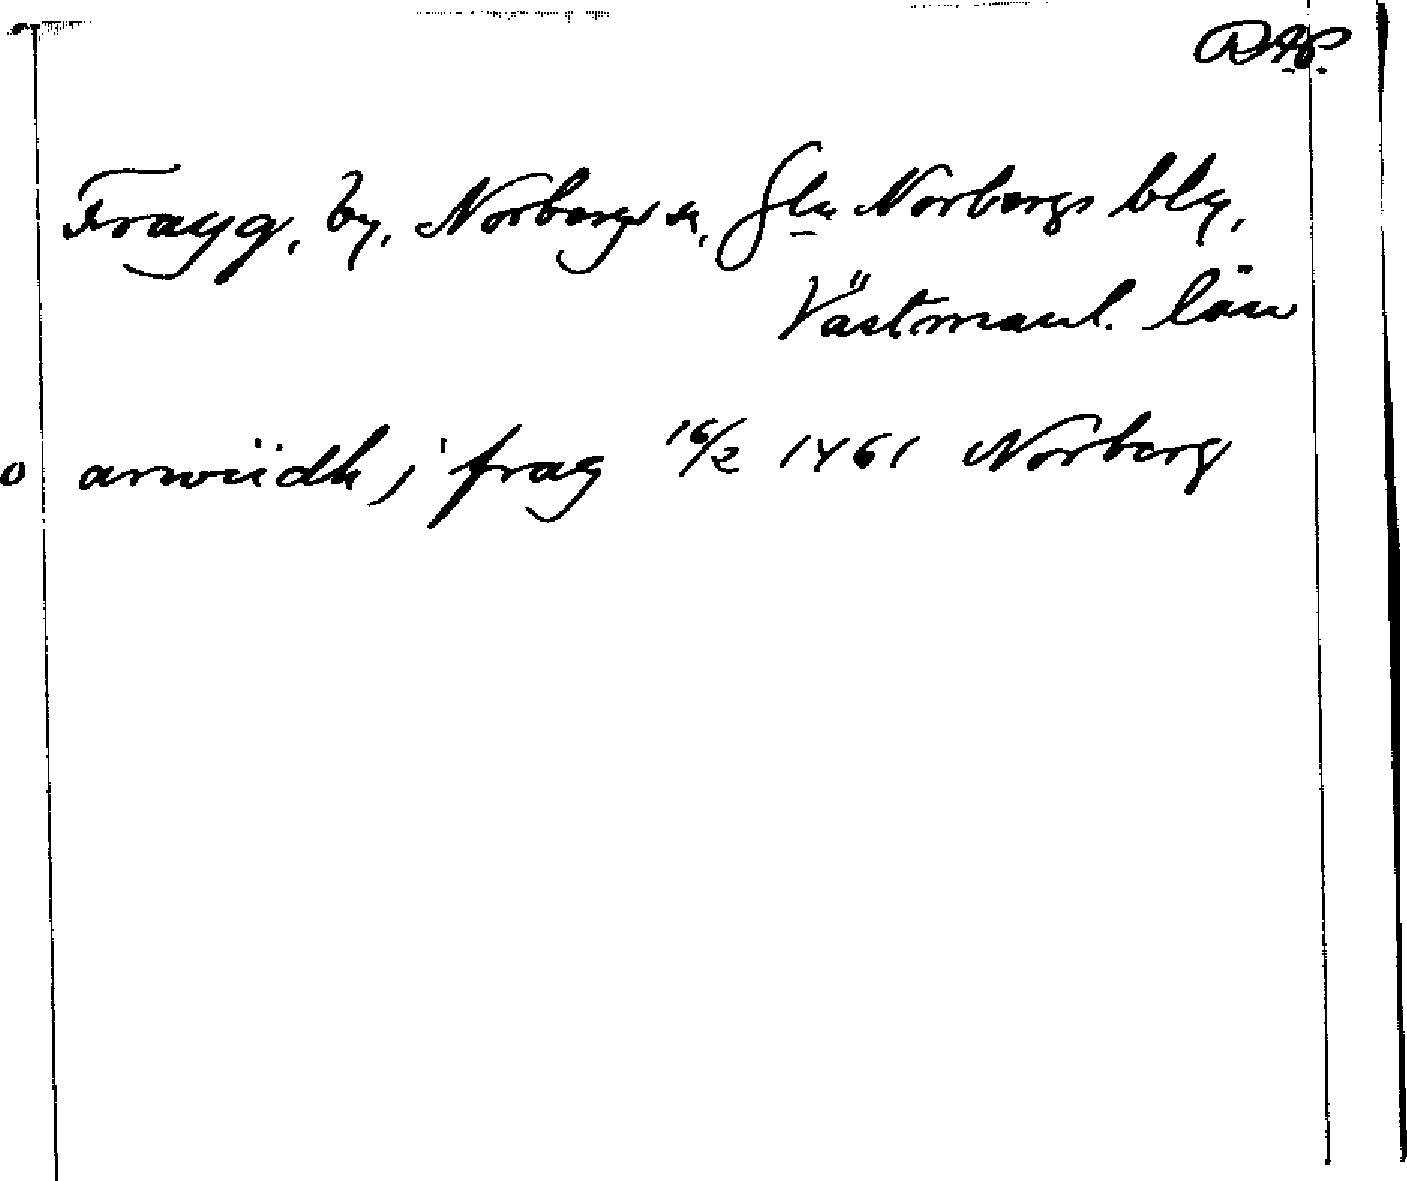 DAP.
Fragg, by, Norbergs sn, Gln Norbergs blg,
Västmanl. län
o arwiidh j frag 16/2 1461 Norberg